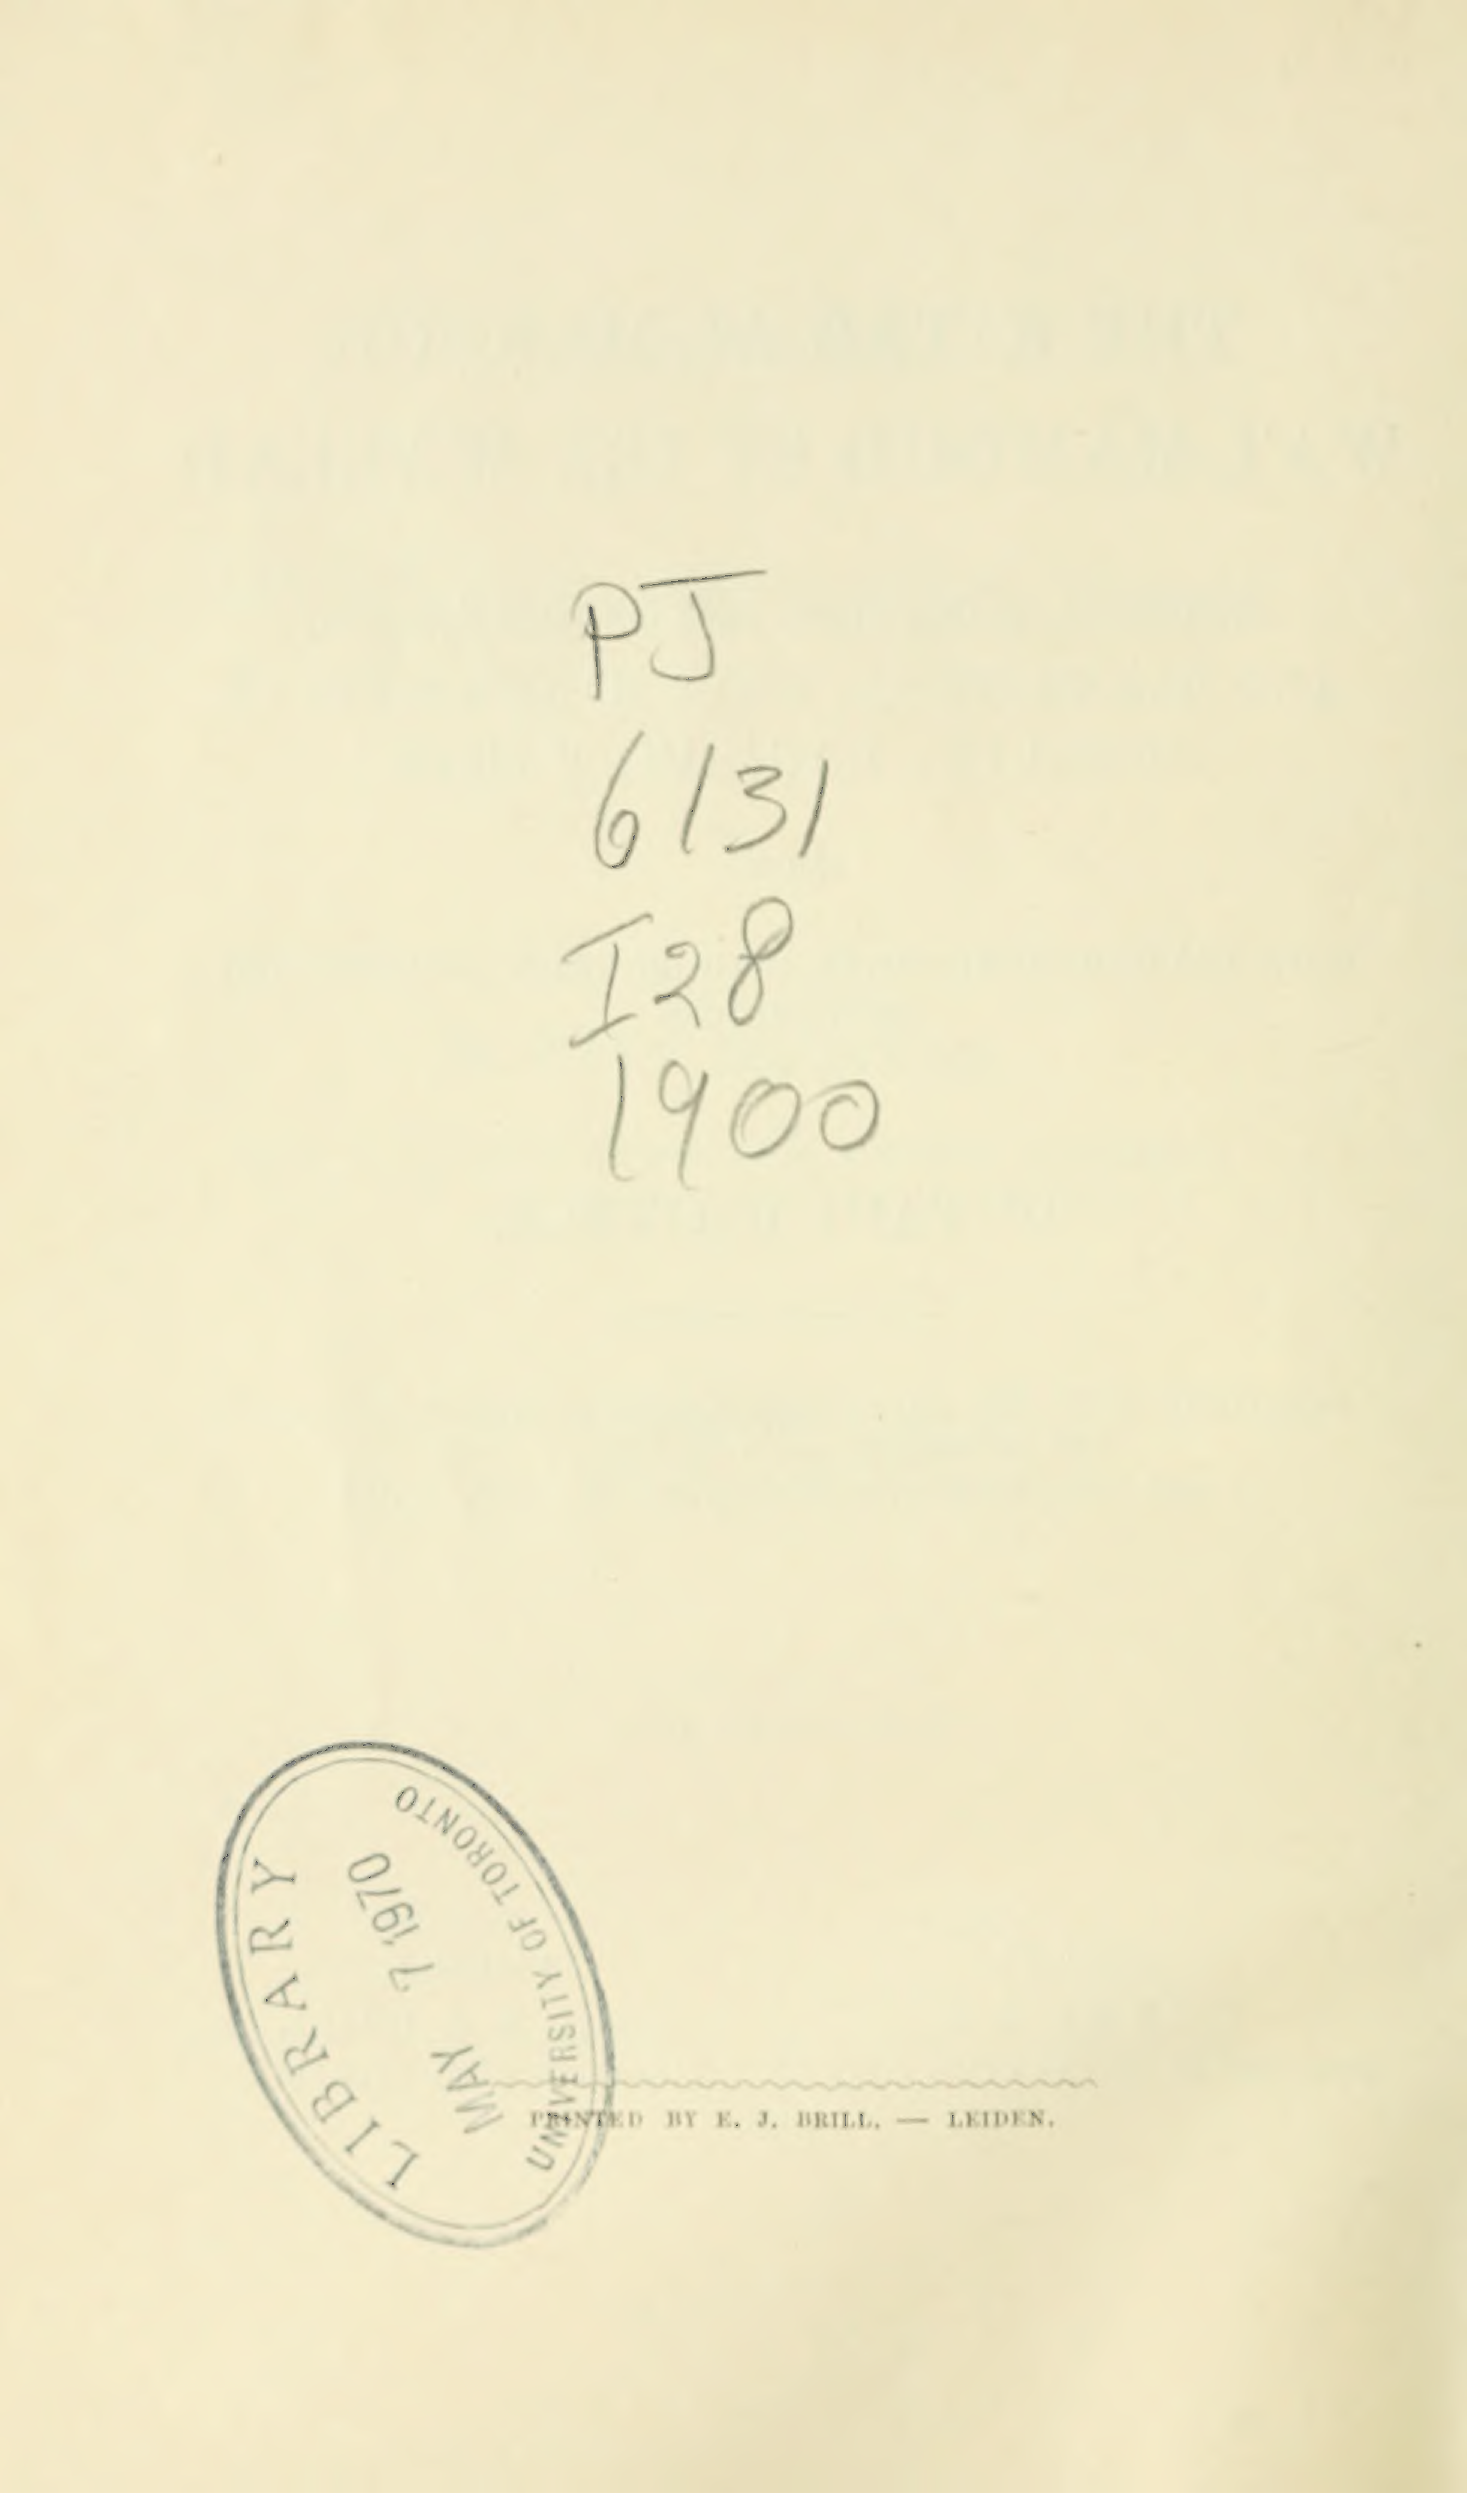 PJ
6131
I28
1900
LIBRARY
MAY 7 1970
UNIVERSITY OF TORONTO
PRINTED BY E. J. BRILL. — LEIDEN.